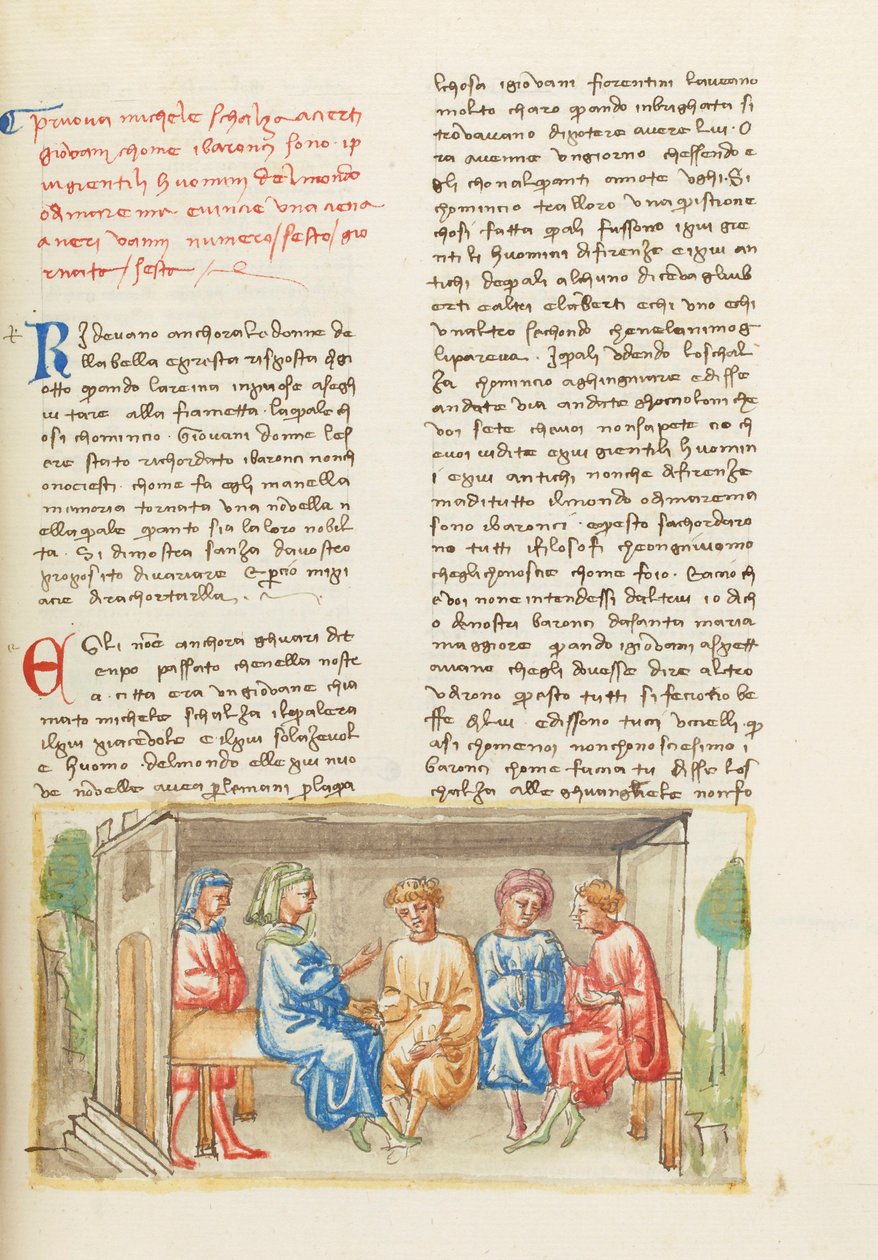 Pruova michele schalza acierti
giovani chome ibaronci sono ip
iu gientili huomini delmondo
odmarema evincie una ciena
aneri vanni numero/sesto/gio
rnata/sesta
Ridevano anchora le donne de
lla bella epresta risposta digi
otto quando lareina inpuose asegh
uitare alla fiametta laquale ch
osi chomincio Giovani donne les
ere stato richordato ibaronci nonch
onociesti chome fa egli manella
memoria tornata una novella n
ella quale quanto sia la loro nobil
ta Si dimostra sanza davostro
proposito divariare Epercio mipi
acie dirachortarlla
Egli none anchora ghuari dit
enpo passato chenella nostr
a citta era un giovane chia
mato michele schalza ilquale era
ilpiu piacevole e ilpiu solazevol
e huomo delmondo elle piu nuo
ve novelle avea perlemani perlaqua
lchosa igiovani fiorentini laveano
molto charo quando inbrighata si
trovavano dipotere avere lui O
ra avenne un giorno chessendo e
gli chonalquanti amote ughi Si
chomincio tralloro una quistione
chosi fatta quali fussono ipiu gie
ntili huomini difirenze eipiu an
tichi dequali alchuno diceva gliub
erti ealtri elanberti echi uno echi
unaltro sechondo chenelanimo g
lipareva Iquali udendo loschal
za chomincio aghingniare edisse
andate via andate ghocioloni che
voi sete chevoi nonsapete cio ch
evoi vidite epiu gientili huomin
i epiu antichi nonche difirenze
maditutto ilmondo odmarema
sono ibaronci equesto sachordaro
no tutti ifilosofi eheongniuomo
cheglichonoscie chome foio Eacio ch
evoi none intendessi daltrui io dich
o denostri baronci dasanta maria
maggiore quando igiovani aspett
avano chegli dovesse dire altro
udirono questo tutti sifeciono be
ffe dilui edissono tuci uccielli qu
asi chomenoi nonchonosciesimo i
baronci chome facia tu disse los
chalza alle ghuangiele nonfo